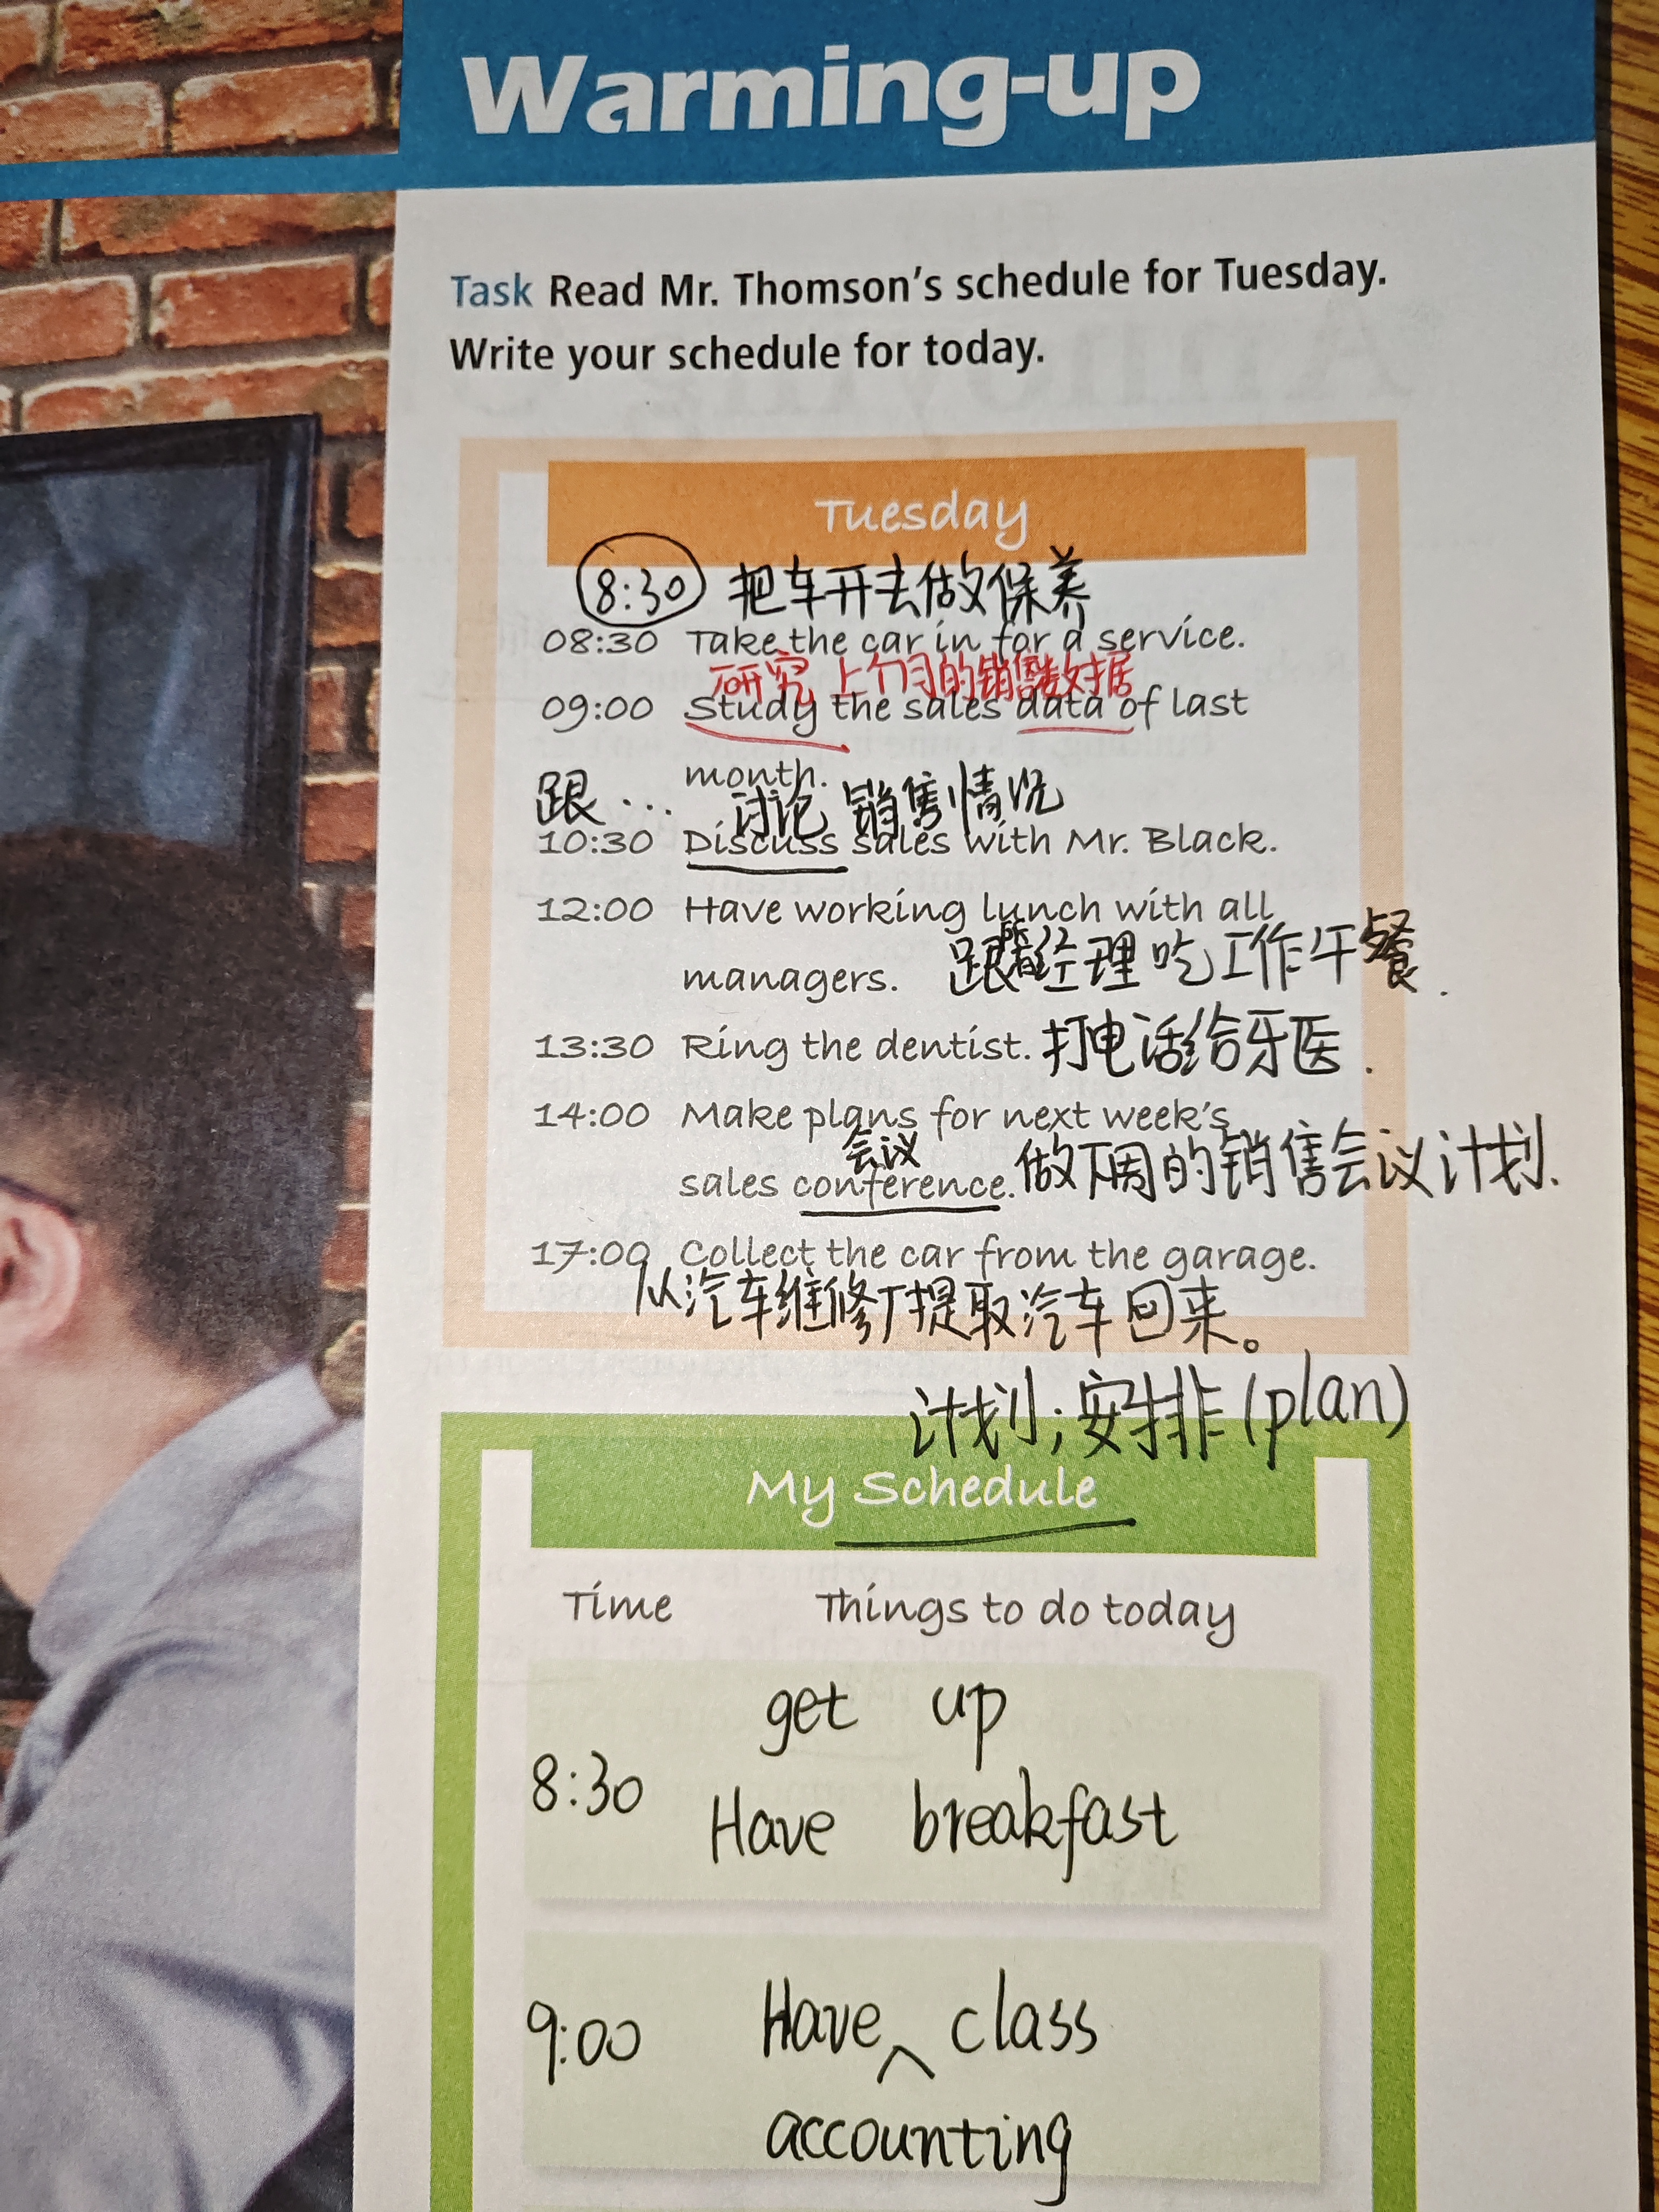 Warming-up
Task Read Mr. Thomson's schedule for Tuesday.
Write your schedule for today.
Tuesday
8:30 把车开去做保养
08:30 Take the car in for a service.
研究 上个月的销售数据
09:00 Study the sales data of last
month.
跟... 讨论 销售情况
10:30 Discuss sales with Mr. Black.
12:00 Have working lunch with all
managers. 跟所有经理吃工作午餐.
13:30 Ring the dentist. 打电话给牙医.
14:00 Make plans for next week's
会议
sales conference. 做下周的销售会议计划.
17:00 Collect the car from the garage.
从汽车维修厂提取汽车回来。
计划;安排(plan)
My Schedule
Time Things to do today
get up
8:30
Have breakfast
9:00 Have ^ class
accounting